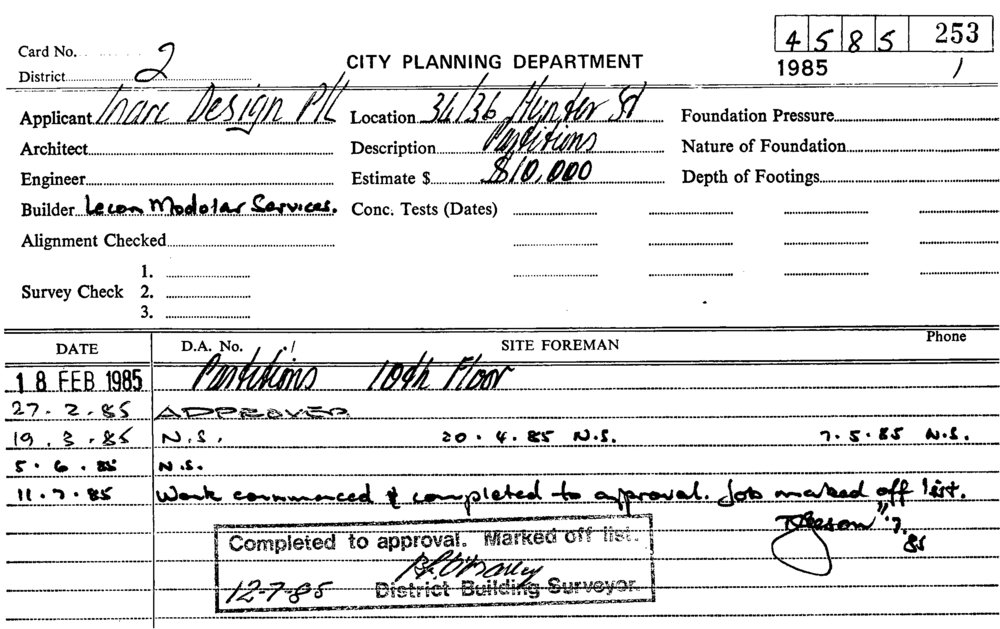 4585 253
Card No. 2
CITY PLANNING DEPARTMENT
1985 /
District
Applicant Inarc Design P/L Location 34/36 Hunter St Foundation Pressure
Architect Description Partitions Nature of Foundation
Engineer Estimate $ $10,000 Depth of Footings
Builder Lecon Modolar Services. Conc. Tests (Dates)
Alignment Checked
1.
Survey Check 2.
3.
DATE D.A. No. ./ SITE FOREMAN Phone
18 FEB 1985 Partitions 10th Floor
27.2.85 APPROVED
19.3.85 N.S. 20.4.85 N.S. 7.5.85 N.S.
5.6.85 N.S.
11.7.85 Work commenced & completed to approval. Job marked off list.
11.7.85
Completed to approval. Marked off list.
12-7-85 District Building Surveyor.